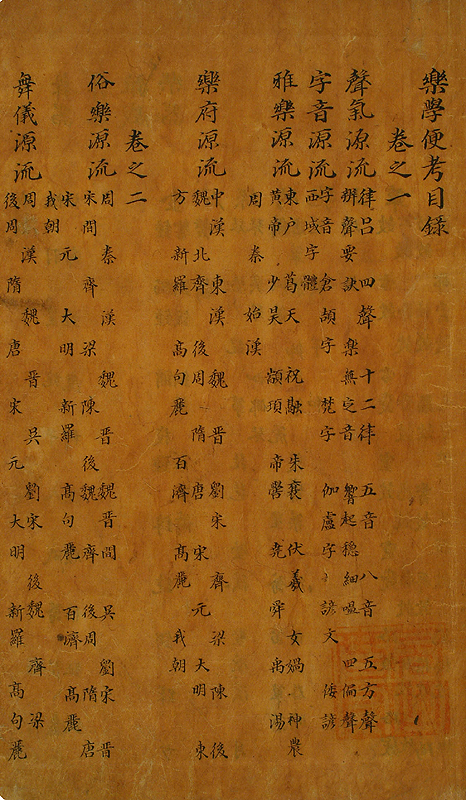 樂學便考目錄
卷之一
聲氣源流 律呂 四聲 十二律 五音 八音 五方聲
辨聲要訣 樂無定音 響起穩細嗢 四侷聲
字音源流 字音 倉頡字 梵字 伽盧字 諺文 倭諺
西域字體
雅樂源流 東户 葛天 祝融 朱襄 伏羲 女媧 神農
黃帝 少昊 顓頊 帝嚳 堯 舜 禹 湯
周 秦始 漢
樂府源流 中漢 東漢 魏 晋 劉宋 齊 梁 陳 後
魏 北齊 後周 隋 唐 宋 元 大明 東
方 新羅 高句麗 百濟 高麗 我朝
卷之二
俗樂源流 周 秦 漢 魏 晋 魏晋間 吳 劉宋 晋
宋間 齊 梁 陳 後魏 齊 後周 隋 唐
宋 元 大明 新羅 高句麗 百濟 高麗
我朝
舞儀源流 周 漢 魏 晋 吳 劉宋 後魏 齊 梁
後周 隋 唐 宋 元 大明 新羅 高句麗